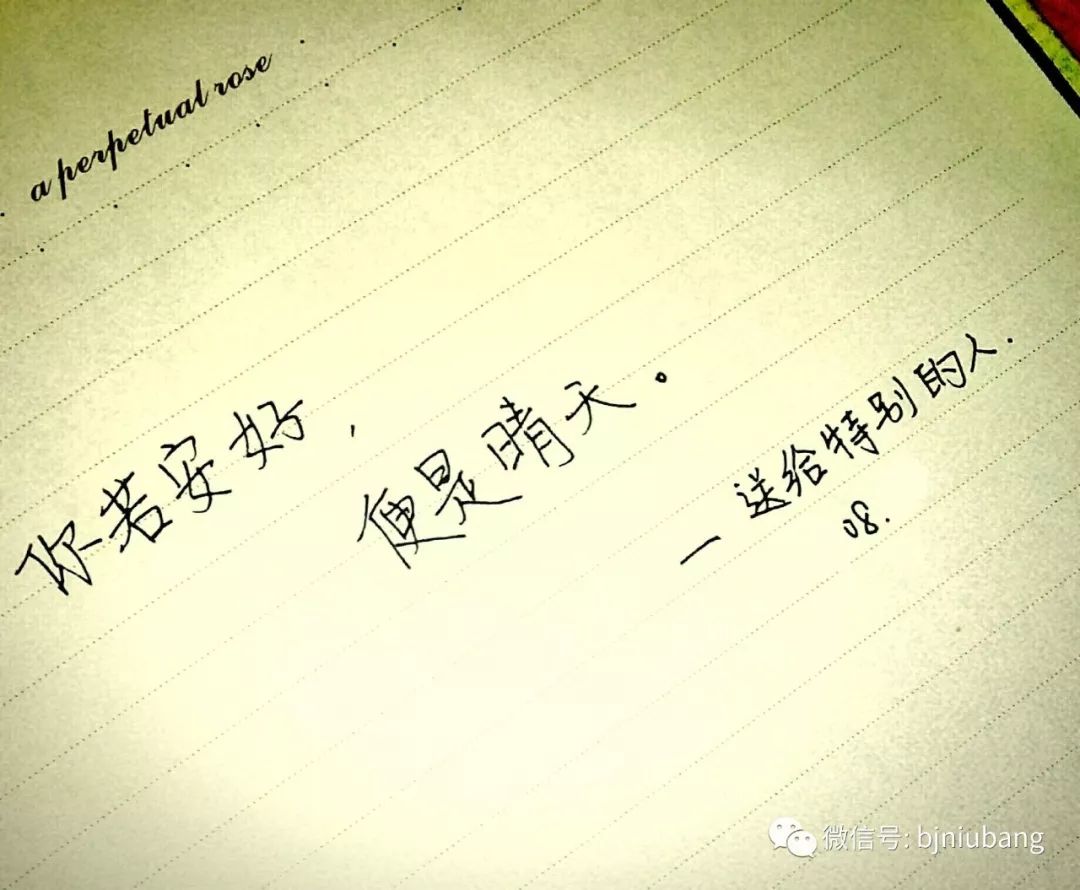 a perpetual rose
你若安好, 便是晴天.
一 送给特别的人.
08.
微信号: bjniubang